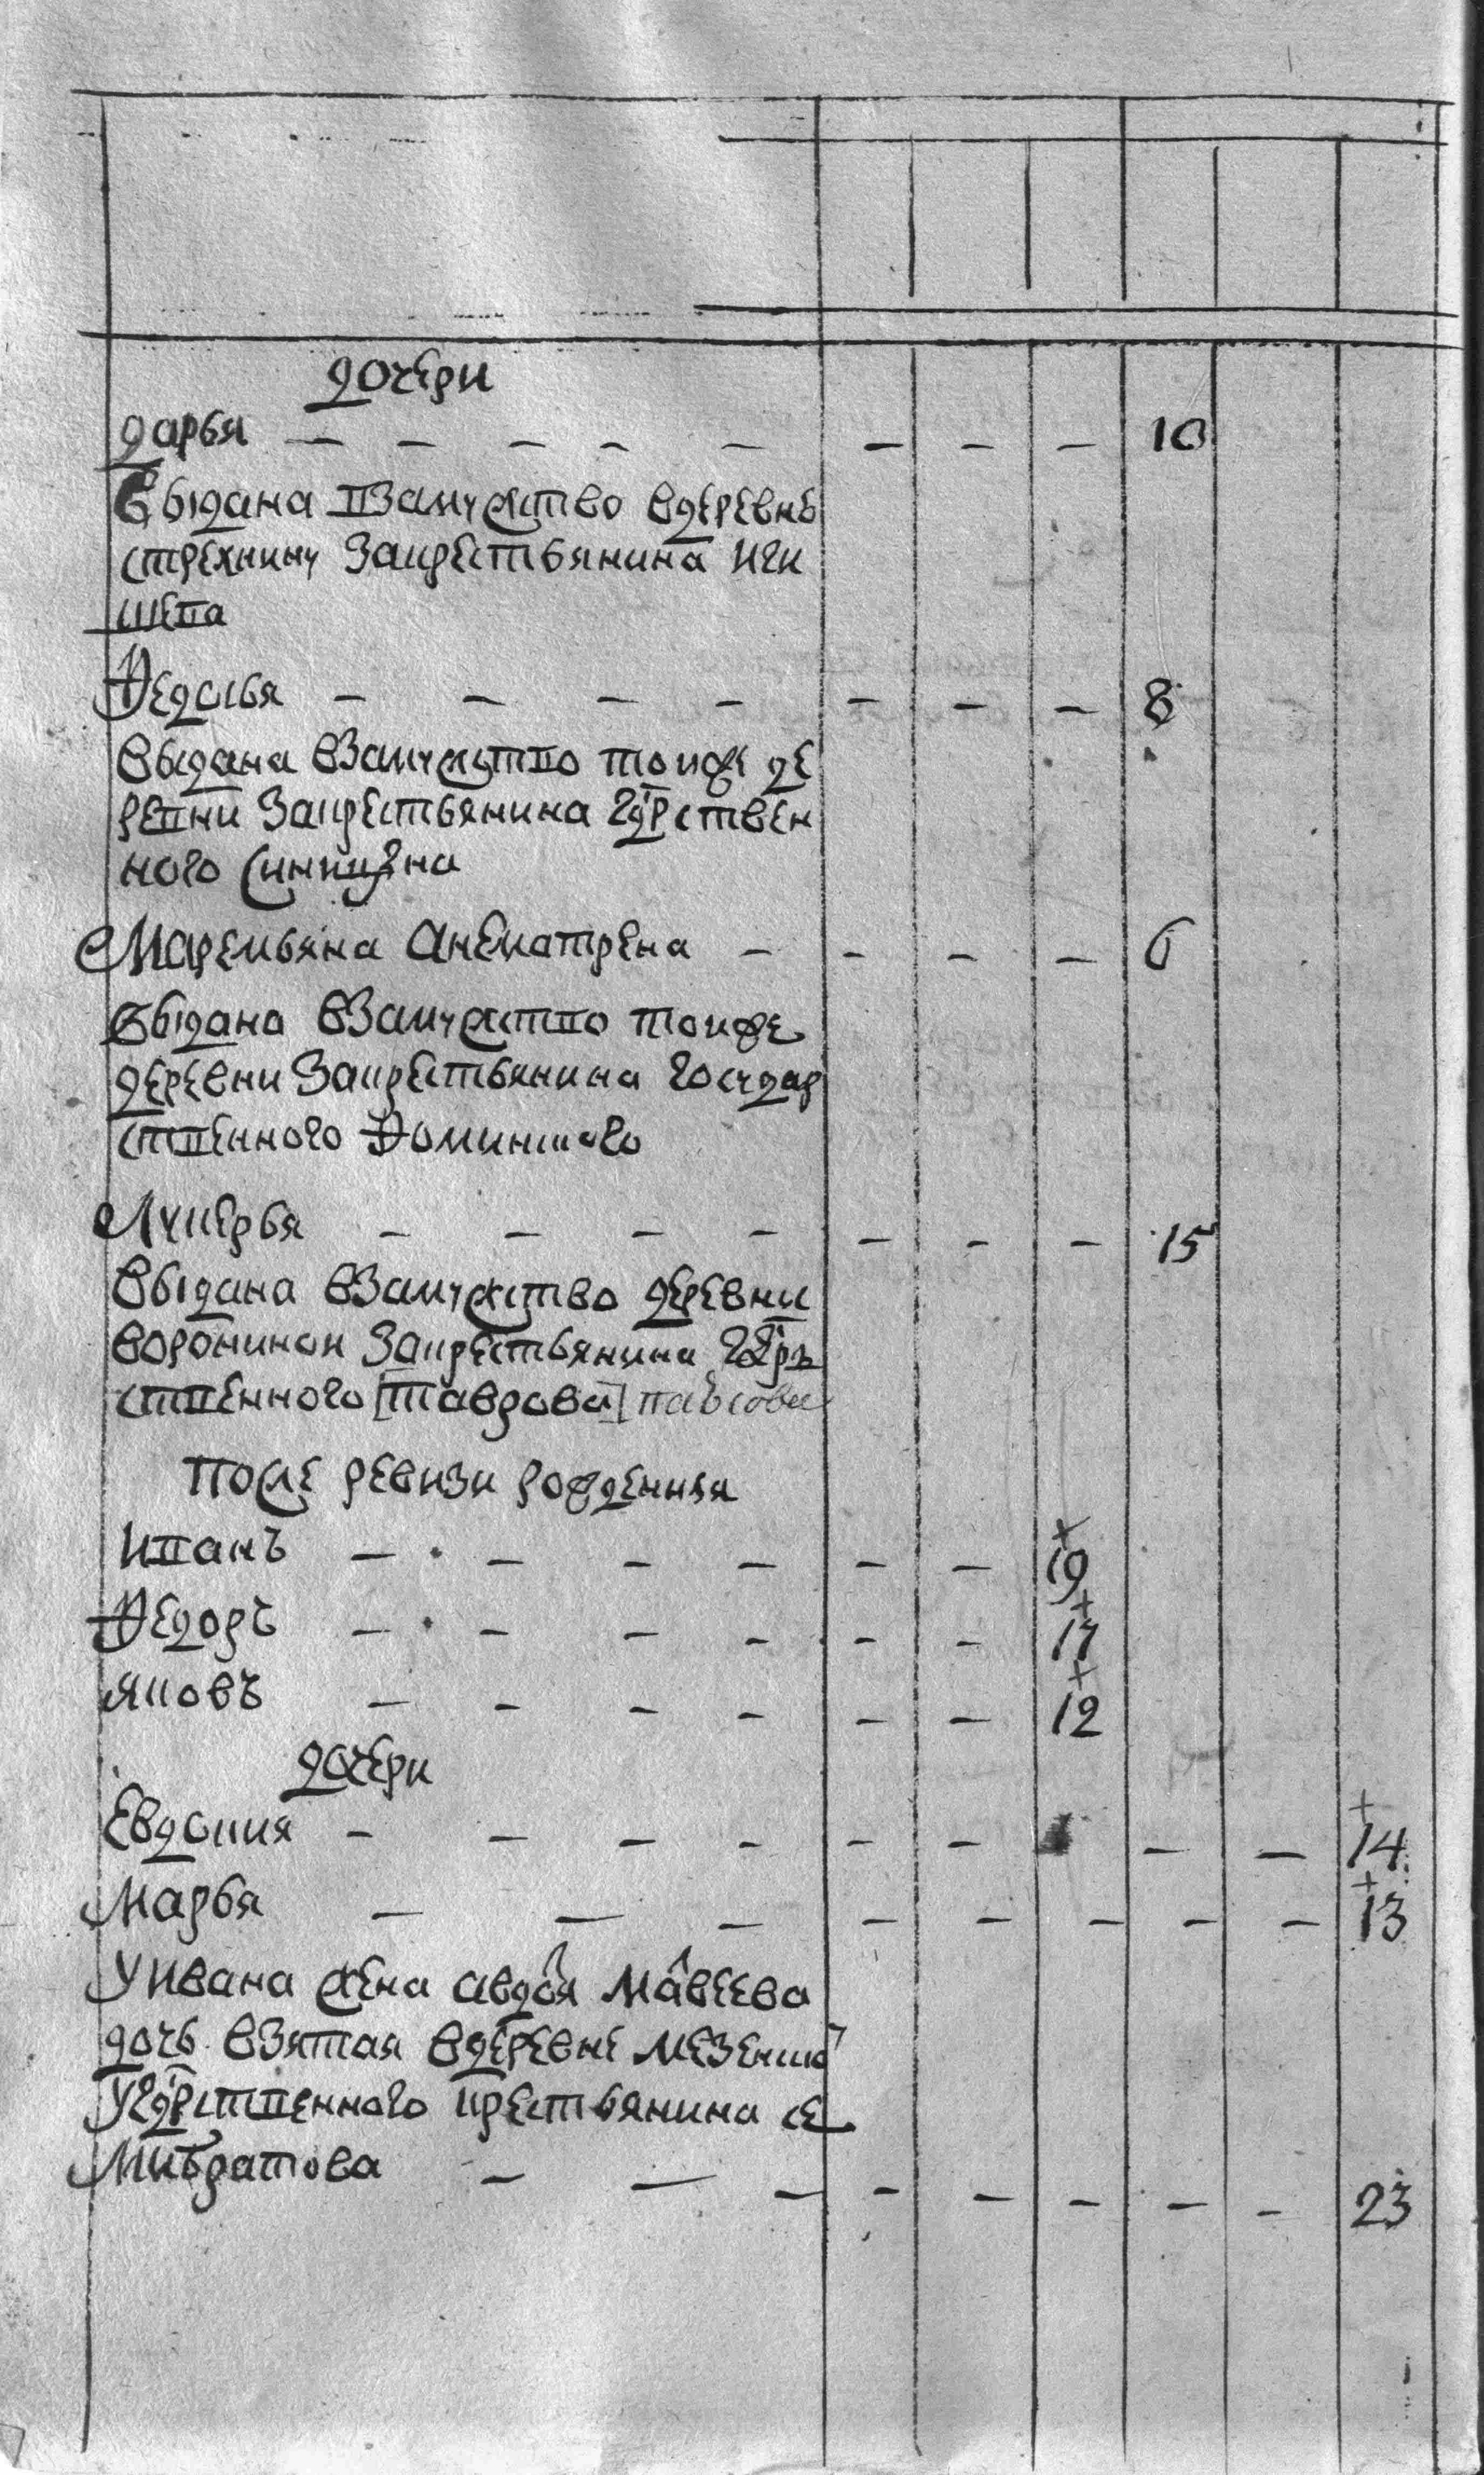 дочери
дарья — — — — — — — — 10
выдана взамужство вдеревнѣ
стрехнину закрестьянина ики
шева
Ѳедосья — — — — — — — 8
выдана взамужство тоиже де
ревни закрестьянина гдрствен
ного синицына
Маремьяна анематрена — — — — 6
выдана взамужство тоиже
деревни закрестьянина государ
ственного Ѳоминского
Лукерья — — — — — — — 15
выдана взамужство деревни
воронинои закрестьянина гдрь
ственного [таврова]
после ревизи рожденныя
иванъ — — — — — — + 19
Ѳедоръ — — — — — — + 17
яковъ — — — — — — + 12
дочери
Евдокия — — — — — — — — + 14
марья — — — — — — — — + 13
у ивана жена авдоя матвеева
дочь взятая вдеревне мезенкои
угдрственного крестьянина се
— — — — — — — — 23